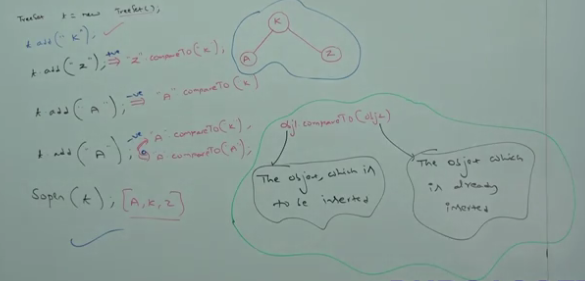 TreeSet t = new TreeSet();
t.add("K");
t.add("Z"); +ve ⇒ "Z".compareTo(K);
t.add("A"); -ve ⇒ "A".compareTo(K)
t.add("A"); -ve "A".compareTo(K);
0 A.compareTo(A);
Sopln(t); [A, K, Z]
K
A
Z
obj1.compareTo(obj2)
The object which is
to be inserted
The object which
is already
inserted